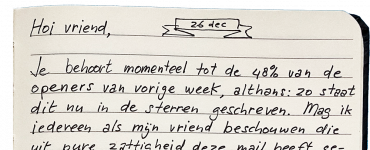 Hoi vriend,
26 dec
Je behoort mometeel tot de 48% van de
openers van vorige week, althans: zo staat
dit nu in de sterren geschreven. Mag ik
iedereen als mijn vriend beschouwen die
uit pure zattigheid deze mail heeft ge-